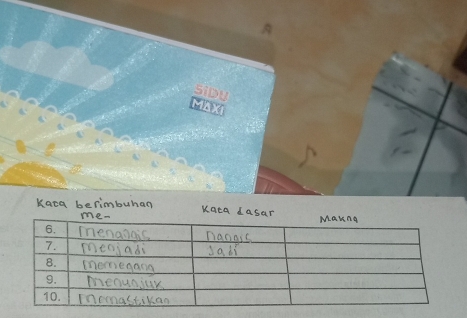 SiDU
MAXI
Kata berimbuhan me- Kata dasar Makna
6. menangis nangis
7. menjadi Jadi
8. memegang
9. menunjuk
10. memastikan